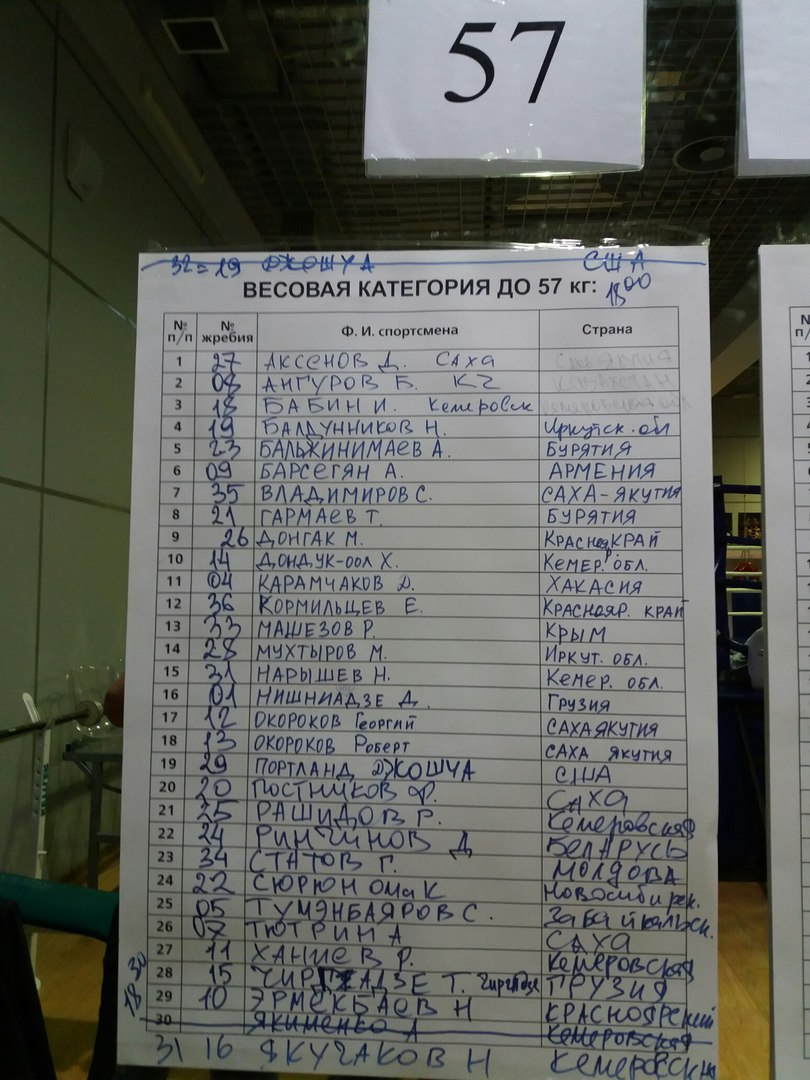 57
32=19 ДЖОШУА США
ВЕСОВАЯ КАТЕГОРИЯ ДО 57 кг: 18 00
№ п/п № жребия Ф. И. спортсмена Страна
1 27 АКСЕНОВ Д. Саха
2 08 АНГУРОВ Б. КZ
3 18 БАБИН И. Кемеровск
4 19 БАЛДУННИКОВ Н. Иркутск. обл
5 23 БАЛЬЖИНИМАЕВ А. БУРЯТИЯ
6 09 БАРСЕГЯН А. АРМЕНИЯ
7 35 ВЛАДИМИРОВ С. САХА-ЯКУТИЯ
8 21 ГАРМАЕВ Т. БУРЯТИЯ
9 26 ДОНГАК М. КРАСНОЯР КРАЙ
10 14 ДОНДУК-ООЛ Х. КЕМЕР. ОБЛ.
11 04 КАРАМЧАКОВ Д. ХАКАСИЯ
12 36 КОРМИЛЬЦЕВ Е. КРАСНОЯР. КРАЙ
13 33 МАШЕЗОВ Р. КРЫМ
14 28 МУХТЫРОВ М. ИРКУТ. ОБЛ.
15 31 НАРЫШЕВ Н. КЕМЕР. ОБЛ.
16 01 НИШНИАДЗЕ Д. ГРУЗИЯ
17 12 ОКОРОКОВ Георгий САХАЯКУТИЯ
18 13 ОКОРОКОВ Роберт САХА ЯКУТИЯ
19 29 ПОРТЛАНД ДЖОШУА США
20 20 ПОСТНИКОВ Ф. САХА
21 25 РАШИДОВ Р. Кемеровская
22 24 РИНЧИНОВ Д БЕЛАРУСЬ
23 34 СТАТОВ Г. МОЛДОВА
24 22 СЮРЮН Омак Новосибирск.
25 05 ТУМЭНБАЯРОВ С. Забайкальск.
26 07 ТЮТРИН А САХА
27 11 ХАНИЕВ Р. Кемеровская
28 15 Т. ГРУЗИЯ
29 10 ЭРМЕКБАЕВ Н КРАСНОЯРСКИЙ
18 30
30 ЯКИМЕНКО А Кемеровская
31 16 ЯКУЧАКОВ Н Кемеровская